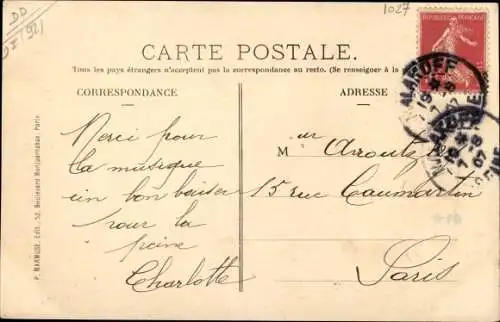 DD
1921
1027
RÉPUBLIQUE FRANÇAISE
CARTE POSTALE.
Tous les pays étrangers n'acceptent pas la correspondance au recto. (Se renseigner à la
CORRESPONDANCE
ADRESSE
Merci pour
la musique
un bon baiser
pour la
peine
Charlotte
M eur Arroutz
15 rue Caumartin
Paris
P. MARMUSE, Edit., 52, Boulevard Bonne
Paris